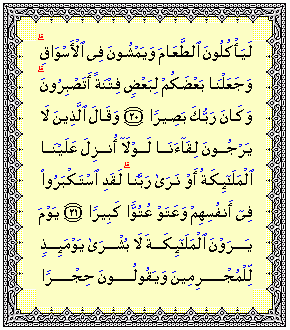 لَيَأْكُلُونَ ٱلطَّعَامَ وَيَمْشُونَ فِى ٱلْأَسْوَاقِۗ
وَجَعَلْنَا بَعْضَكُمْ لِبَعْضٍ فِتْنَةً أَتَصْبِرُونَۗ
وَكَانَ رَبُّكَ بَصِيرًا ۝٢٠ وَقَالَ ٱلَّذِينَ لَا
يَرْجُونَ لِقَآءَنَا لَوْلَآ أُنزِلَ عَلَيْنَا
ٱلْمَلَٰٓئِكَةُ أَوْ نَرَىٰ رَبَّنَاۗ لَقَدِ ٱسْتَكْبَرُوا۟
فِىٓ أَنفُسِهِمْ وَعَتَوْ عُتُوًّا كَبِيرًا ۝٢١ يَوْمَ
يَرَوْنَ ٱلْمَلَٰٓئِكَةَ لَا بُشْرَىٰ يَوْمَئِذٍ
لِّلْمُجْرِمِينَ وَيَقُولُونَ حِجْرًا